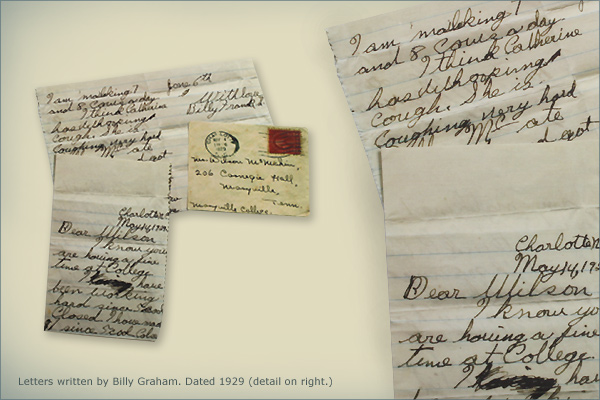 I am malking 7
and 8 Cows a day
I think Catherine
has dythooping
cough. She is
Coughing very hard
Mc ate
With love
Billy Frank
Mr. Wilson McMakin,
206 Carnegie Hall,
Maryville,
Tenn.
Maryville College.
Charlotte
Dear Wilson
I know you
are hauing a fine
time at College
I have
been working
hard since School
Closed I have
since School
I am malking 7
and 8 Cows a day
I think Catherine
has dythooping
cough. She is
Coughing very hard
Mc ate
Charlotte
May 14, 19
Dear Wilson
I know yo
are hauing a fine
time at College.
I hav
Letters written by Billy Graham. Dated 1929 (detail on right.)